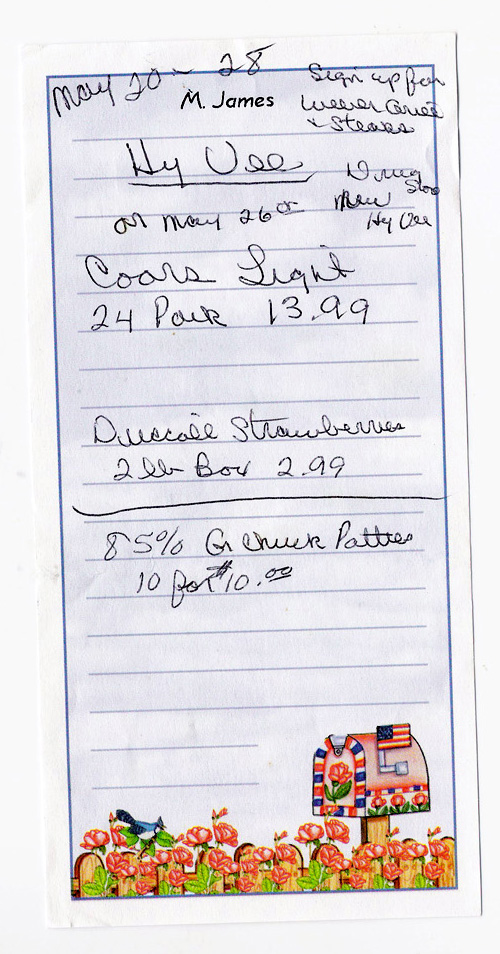 May 20 - 28
Sign up for
Weber Grill
& Steaks
M. James
Hy Vee
Drug
Store
New
Hy Vee
on May 26th
Coors Light
24 Pack 13.99
Driscoll Strawberries
2 lb Box 2.99
85% Gr Chuck Patties
10 for $10.00